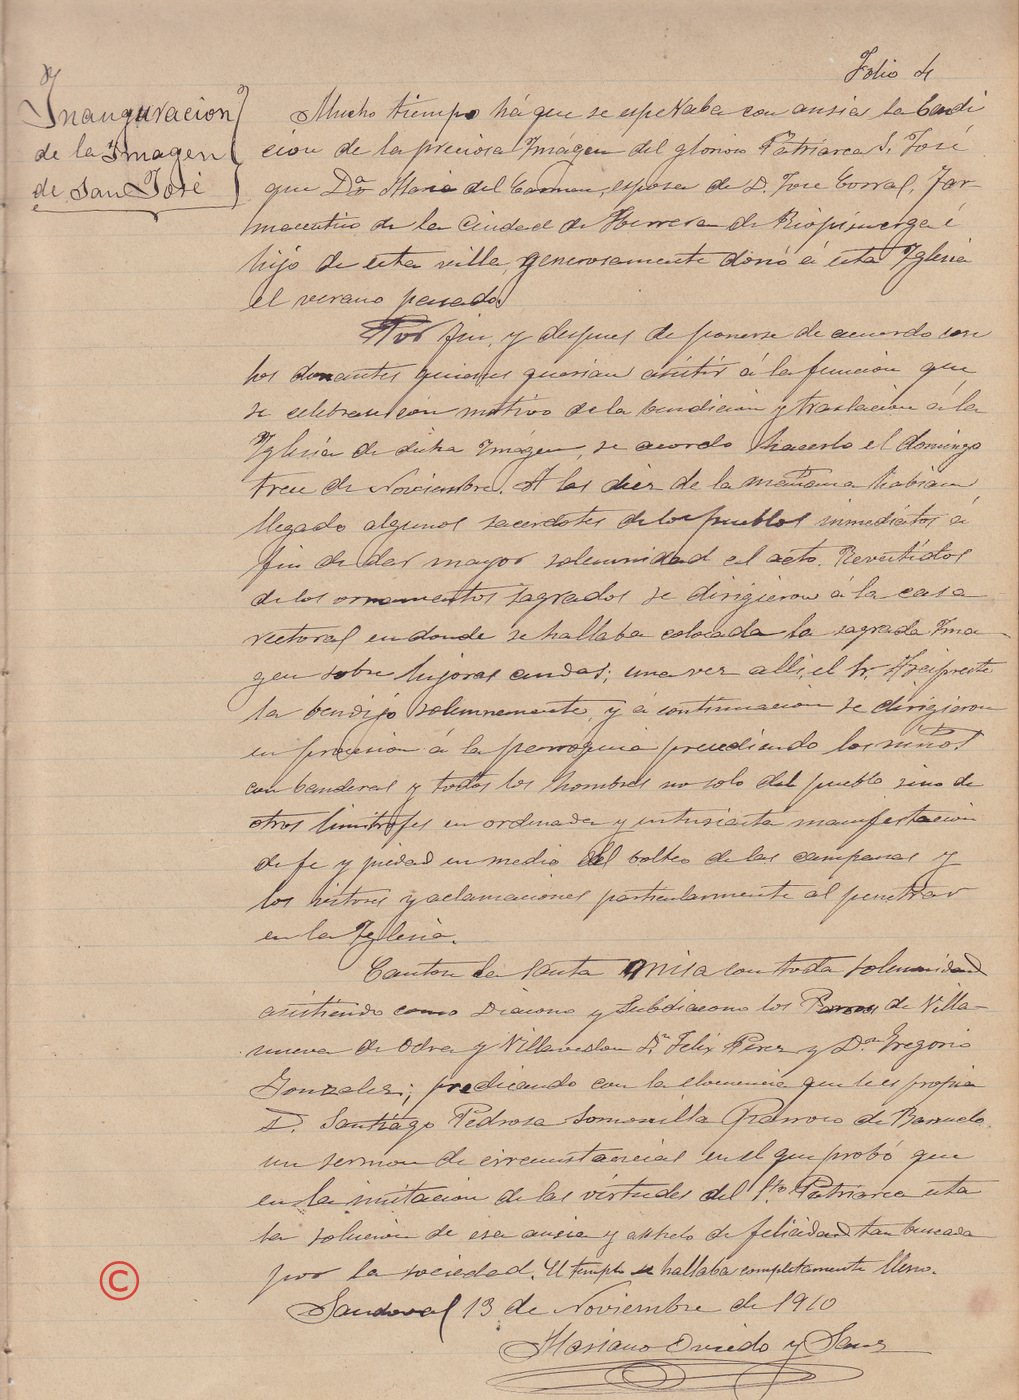 Folio 4
Inauguracion
de la Imagen
de San José
Mucho tiempo há que se esperaba con ansia la bendi
cion de la preciosa Imágen del glorioso Patriarca S. José
que Dª Maria del Carmen, esposa de D. Jose Corral, Far-
maceutico de la Ciudad de Herrera de Riopisuerga é
hijo de esta villa, generosamente donó á esta Iglesia
el verano pasado.
Por fin, y despues de ponerse de acuerdo con
los donantes quienes querian asistir á la funcion que
se celebrase con motivo de la bendicion y traslacion á la
Iglesia de dicha Imágen, se acordo hacerlo el domingo
trece de Noviembre. A las diez de la mañana habian
llegado algunos sacerdotes de los pueblos inmediatos á
fin de dar mayor solemnidad al acto. Revestidos
de los ornamentos sagrados se dirigieron á la casa
rectoral en donde se hallaba colocada la sagrada Ima-
gen sobre lujosas andas; una vez alli, el Sr. Arcipreste
la bendijo solemnemente, y á continuacion se dirigieron
en procesion á la parroquia precediendo los niños
con banderas y todos los hombres no solo del pueblo sino de
otros limitrofes en ordenada y entusiasta manifestacion
de fe y piedad en medio del volteo de las campanas y
los vitores y aclamaciones particularmente al penetrar
en la Iglesia.
Cantose la Santa Misa con toda solemnidad
asistiendo como Diacono y Subdiacono los Parrocos de Villa-
nueva de Odra y Villavedon Dn Felix Perez y Dn Gregorio
Gonzalez; predicando con la elocuencia que le es propia
D. Santiago Pedrosa Somonilla Parroco de Barruelo.
un sermon de circunstancias en el que probó que
en la imitacion de las virtudes del Sto Patriarca esta
la solucion de esa ansia y anhelo de felicidad tan buscada
por la sociedad. El templo se hallaba completamente lleno.
Sandoval 13 de Noviembre de 1910
Mariano Oviedo y Sanz
©